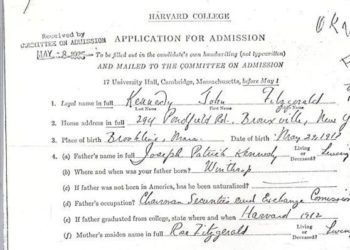 HARVARD COLLEGE
Received by
COMMITTEE ON ADMISSION
MAY -8 1935
APPLICATION FOR ADMISSION
To be filled out in the candidate's own handwriting (not typewritten)
AND MAILED TO THE COMMITTEE ON ADMISSION
17 University Hall, Cambridge, Massachusetts, before May 1
1. Legal name in full Kennedy John Fitzgerald
Last Name First Name Middle Name
2. Home address in full 294 Pondfield Rd. Bronxville, New Y
3. Place of birth Brookline, Mass. Date of birth May 29, 191
4. (a) Father's name in full Joseph Patrick Kennedy Living or Deceased?
(b) Where and when was your father born? Winthrop
(c) If father was not born in America, has he been naturalized?
(d) Father's occupation? Chairman Securities and Exchange Commission
(e) If father graduated from college, state where and when Harvard 1912
(f) Mother's maiden name in full Rose Fitzgerald Living or Deceased?